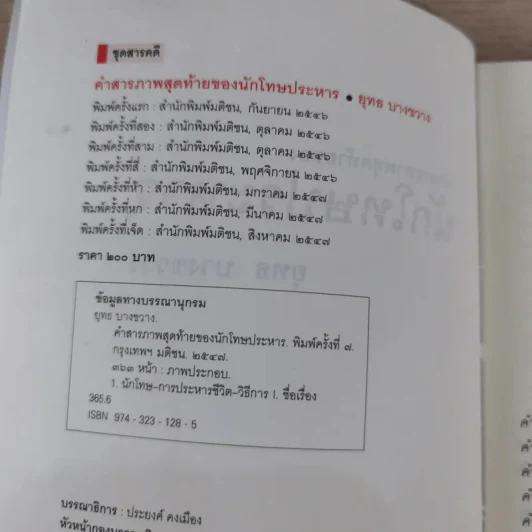 ชุดสารคดี
คำสารภาพสุดท้ายของนักโทษประหาร • ยุทธ บางขวาง
พิมพ์ครั้งแรก : สำนักพิมพ์มติชน, กันยายน ๒๕๔๖
พิมพ์ครั้งที่สอง : สำนักพิมพ์มติชน, ตุลาคม ๒๕๔๖
พิมพ์ครั้งที่สาม : สำนักพิมพ์มติชน, ตุลาคม ๒๕๔๖
พิมพ์ครั้งที่สี่ : สำนักพิมพ์มติชน, พฤศจิกายน ๒๕๔๖
พิมพ์ครั้งที่ห้า : สำนักพิมพ์มติชน, มกราคม ๒๕๔๗
พิมพ์ครั้งที่หก : สำนักพิมพ์มติชน, มีนาคม ๒๕๔๗
พิมพ์ครั้งที่เจ็ด : สำนักพิมพ์มติชน, สิงหาคม ๒๕๔๗
ราคา ๒๐๐ บาท
ข้อมูลทางบรรณานุกรม
ยุทธ บางขวาง.
คำสารภาพสุดท้ายของนักโทษประหาร. พิมพ์ครั้งที่ ๗.
กรุงเทพฯ มติชน. ๒๕๔๗.
๓๖๓ หน้า : ภาพประกอบ.
1. นักโทษ-การประหารชีวิต-วิธีการ I. ชื่อเรื่อง
365.6
ISBN 974 - 323 - 128 - 5
บรรณาธิการ : ประยงค์ คงเมือง